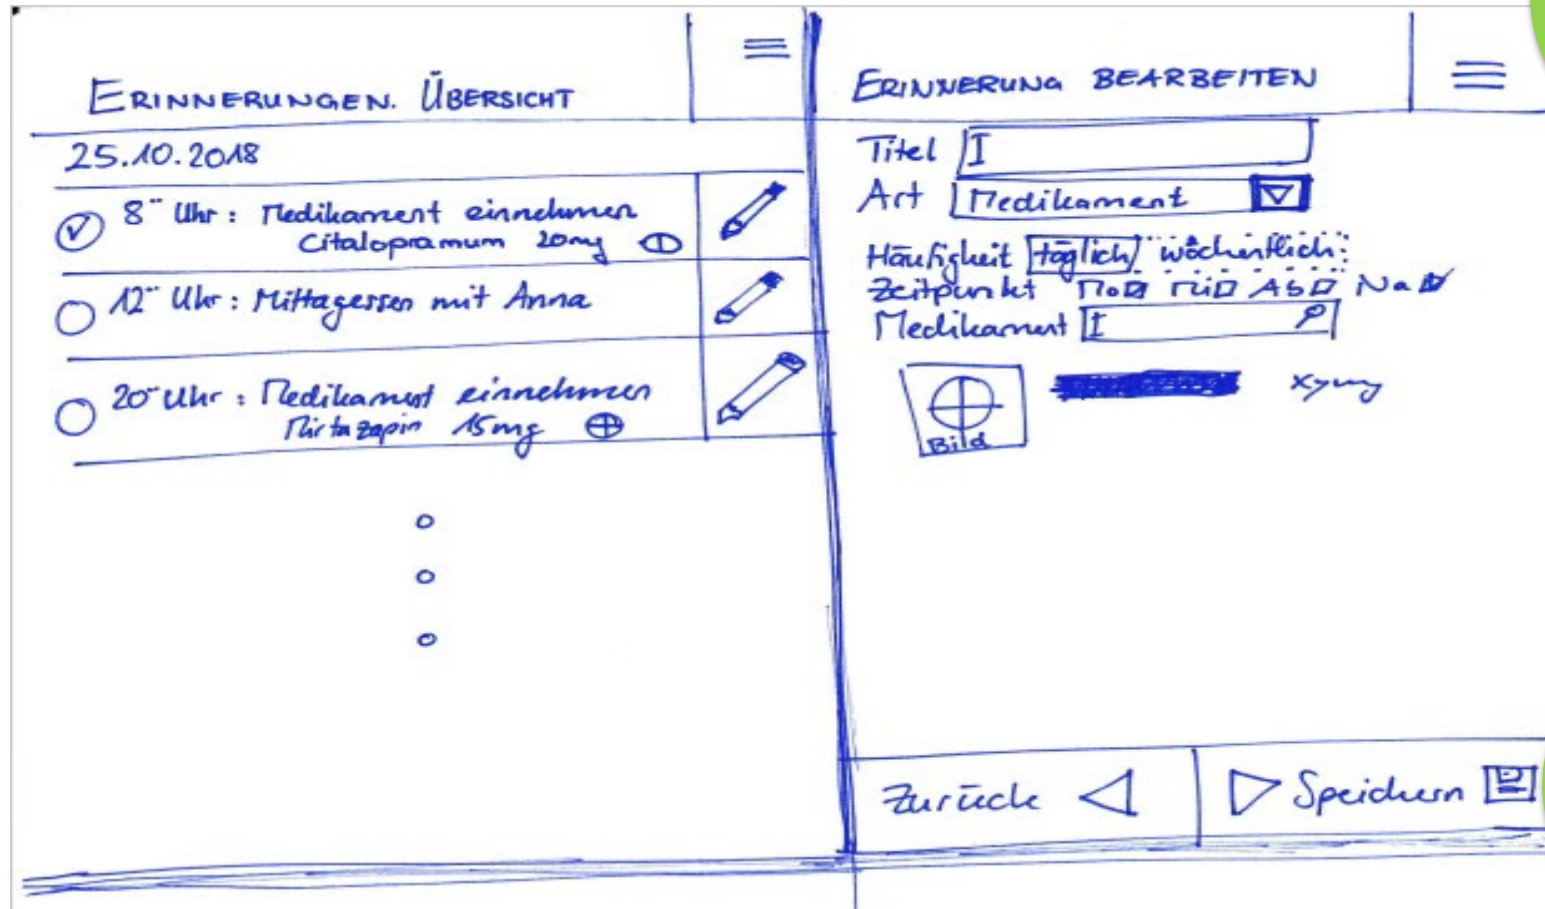 ERINNERUNGEN. ÜBERSICHT
25.10.2018
8⁻⁻ Uhr : Medikament einnehmen
Citalopramum 20mg
12⁻⁻ Uhr : Mittagessen mit Anna
20⁻⁻ Uhr : Medikament einnehmen
Mirtazapin 15mg
ERINNERUNG BEARBEITEN
Titel I
Art Medikament
Häufigkeit täglich wöchentlich
Zeitpunkt Mo Mi Ab Na
Medikament I
Bild xymg
Zurück Speichern